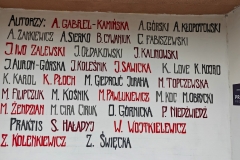 AUTORZY: A. GABREL-KAMIŃSKA A. GÓRSKI A. KŁOPOTOWSKI
A. ZANKIEWICZ A. SIERKO B. CWANIUK C. FABISZEWSKI
J. IWO ZALEWSKI J. OŁDAKOWSKI J. KALINOWSKI
J. AUROŃ-GÓRSKA J. KOLEŚNIK J. SAWICKA K. LOVE K.
K. KAROL K. PŁOCH M. GIEDROJĆ JURAHA M. TOPCZEWSKA
M. FILIPCZUK M. KOŚNIK M. PAWLUKIEWICZ M. KOC M. OBRYCKI
M. ZENDZIAN M. CIRA CIRUK O. GÓRNICKA P. NIEDŹWIEDŹ
PRAKTIS S. HAŁADYJ W. WOJTKIELEWICZ
Z. KOLENKIEWICZ Z. ŚWIĘCKA